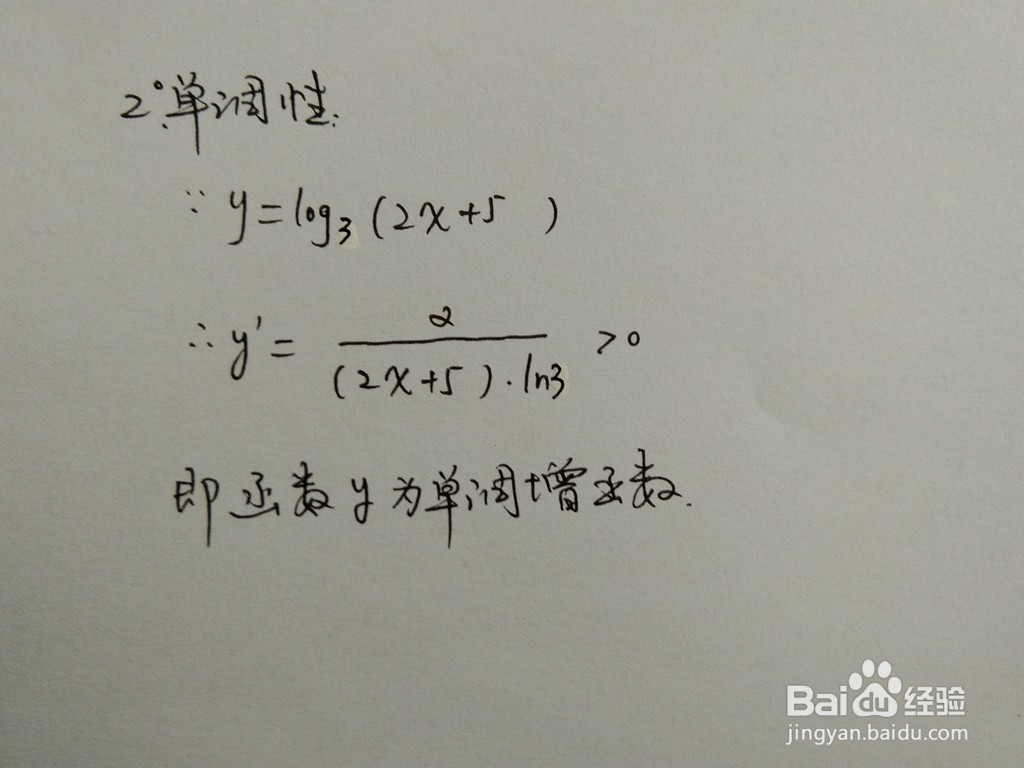 2°.单调性:
∵ y=log₃(2x+5 )
∴ y'= 2/((2x+5)·ln3) >0
即函数y为单调增函数.
Baidu经验
jingyan.baidu.com